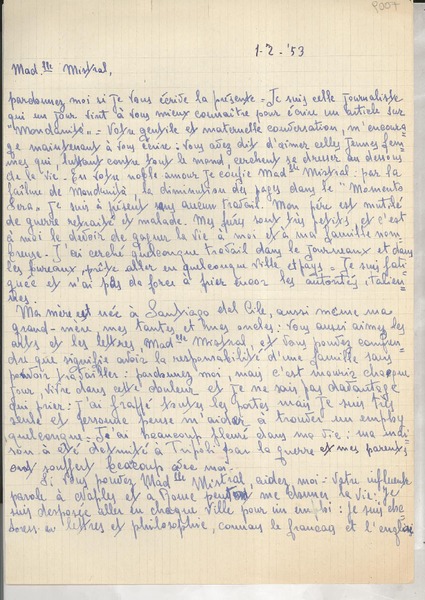 1-2-'53
Mad.lle Mistral,
pardonnez moi si je vous écrive la présente. Je suis celle journaliste
qui un jour vint à vous mieux connaître pour écrire un article sur
"Mondanità". Votre gentile et maternelle conversation, m'encoura-
ge maintenant à vous écrire: vous avez dit d'aimer celles jeunes fem-
mes qui, luttant contre tout le mond, cerchent se dresser au dessous
de la vie. En votre noble amour je confie Mad.lle Mistral: par la
faillite de Mondanità, la diminution des pages dans le "Momento
Sera" Je suis à présent sans aucun travail. Mon père est mutilé
de guerre retraité et malade. Mes frères sont très petits, et c'est
à moi le devoir de gagner la vie à moi et à ma famille nom-
breuse. J'ai cerché quelconque travail dans le journeaux et dans
les bureaux, prête aller en quelconque ville et pays. Je suis fati-
guée et n'ai pas de force à prier encor les autorités italien-
nes.
Ma mère est née à Santiago del Cile, aussi même ma
grand-mère, mes tantes et mes oncles: vous aussi aimez les
arts et les lettres Mad.lle Mistral, et vous pouvez compren-
dre que signifie avoir la responsabilité d'une famille sans
pouvoir travailler: pardonnez moi, mais c'est mourir chaque
jour, vivre dans cette douleur et je ne sais pas davantage
qui prier. J'ai frappé toutes les portes mais je suis très
seule et personne pense m'aider à trouver un employ
quelconque. J'ai beaucoup pleuré dans ma vie: ma mai-
son a été détruite à Tripoli par la guerre et mes parents
ont souffert beaucoup avec moi.
Si vous pouvez Mad.lle Mistral, aidez moi: votre influente
parole à Naples et a Rome peut me donner la vie: je
suis desposée aller en chaque ville pour un emploi: je suis
en lettres et philosophie, connais le français et l'englais